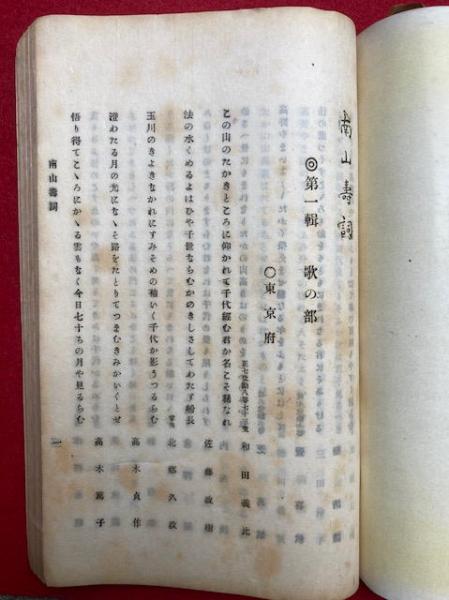 南山壽詞
◎第一輯 歌の部
○東京府
この山のたかきところに仰かれて千代經む君か名こそ高なれ
和田義比
法の水くめるよはひや千世ならむかのきしさしてわたす船長
佐藤敢樹
玉川のきよきなかれにすみそめの袖いく千代か影うつるらむ
北鄕久政
澄わたる月の光になゝそ路をたとりてつまむきみかいくとせ
高木貞作
悟り得てこゝろにかゝる雲もなく今日七十ちの月や見るらむ
高木篤子
南山壽詞
一